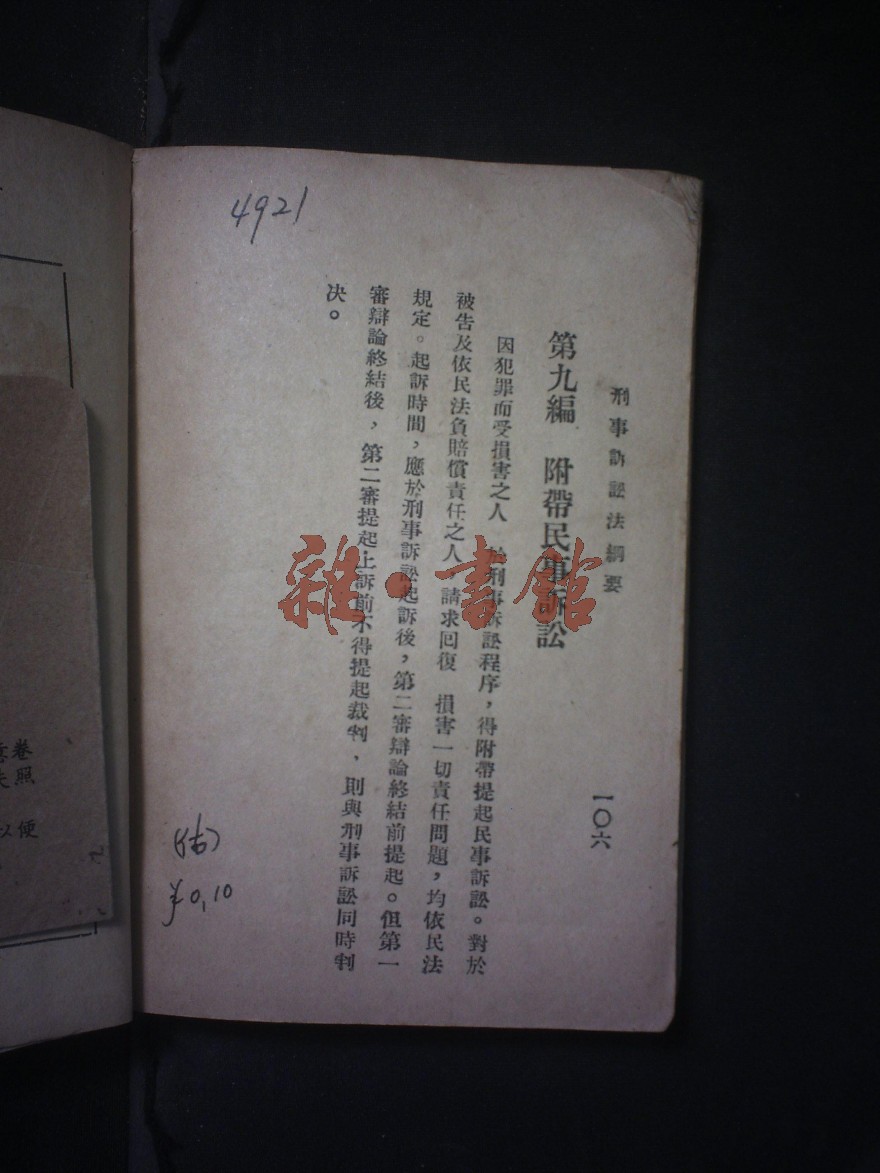 刑事訴訟法綱要
一〇六
第九編 附帶民事訴訟
因犯罪而受損害之人 於刑事訴訟程序，得附帶提起民事訴訟。對於
被告及依民法負賠償責任之人，請求回復 損害一切責任問題，均依民法
規定。起訴時間，應於刑事訴訟起訴後，第二審辯論終結前提起。但第一
審辯論終結後，第二審提起上訴前不得提起裁判，則與刑事訴訟同時判
決。
4921
(估)
¥0,10
雜·書館
卷
失照
以便